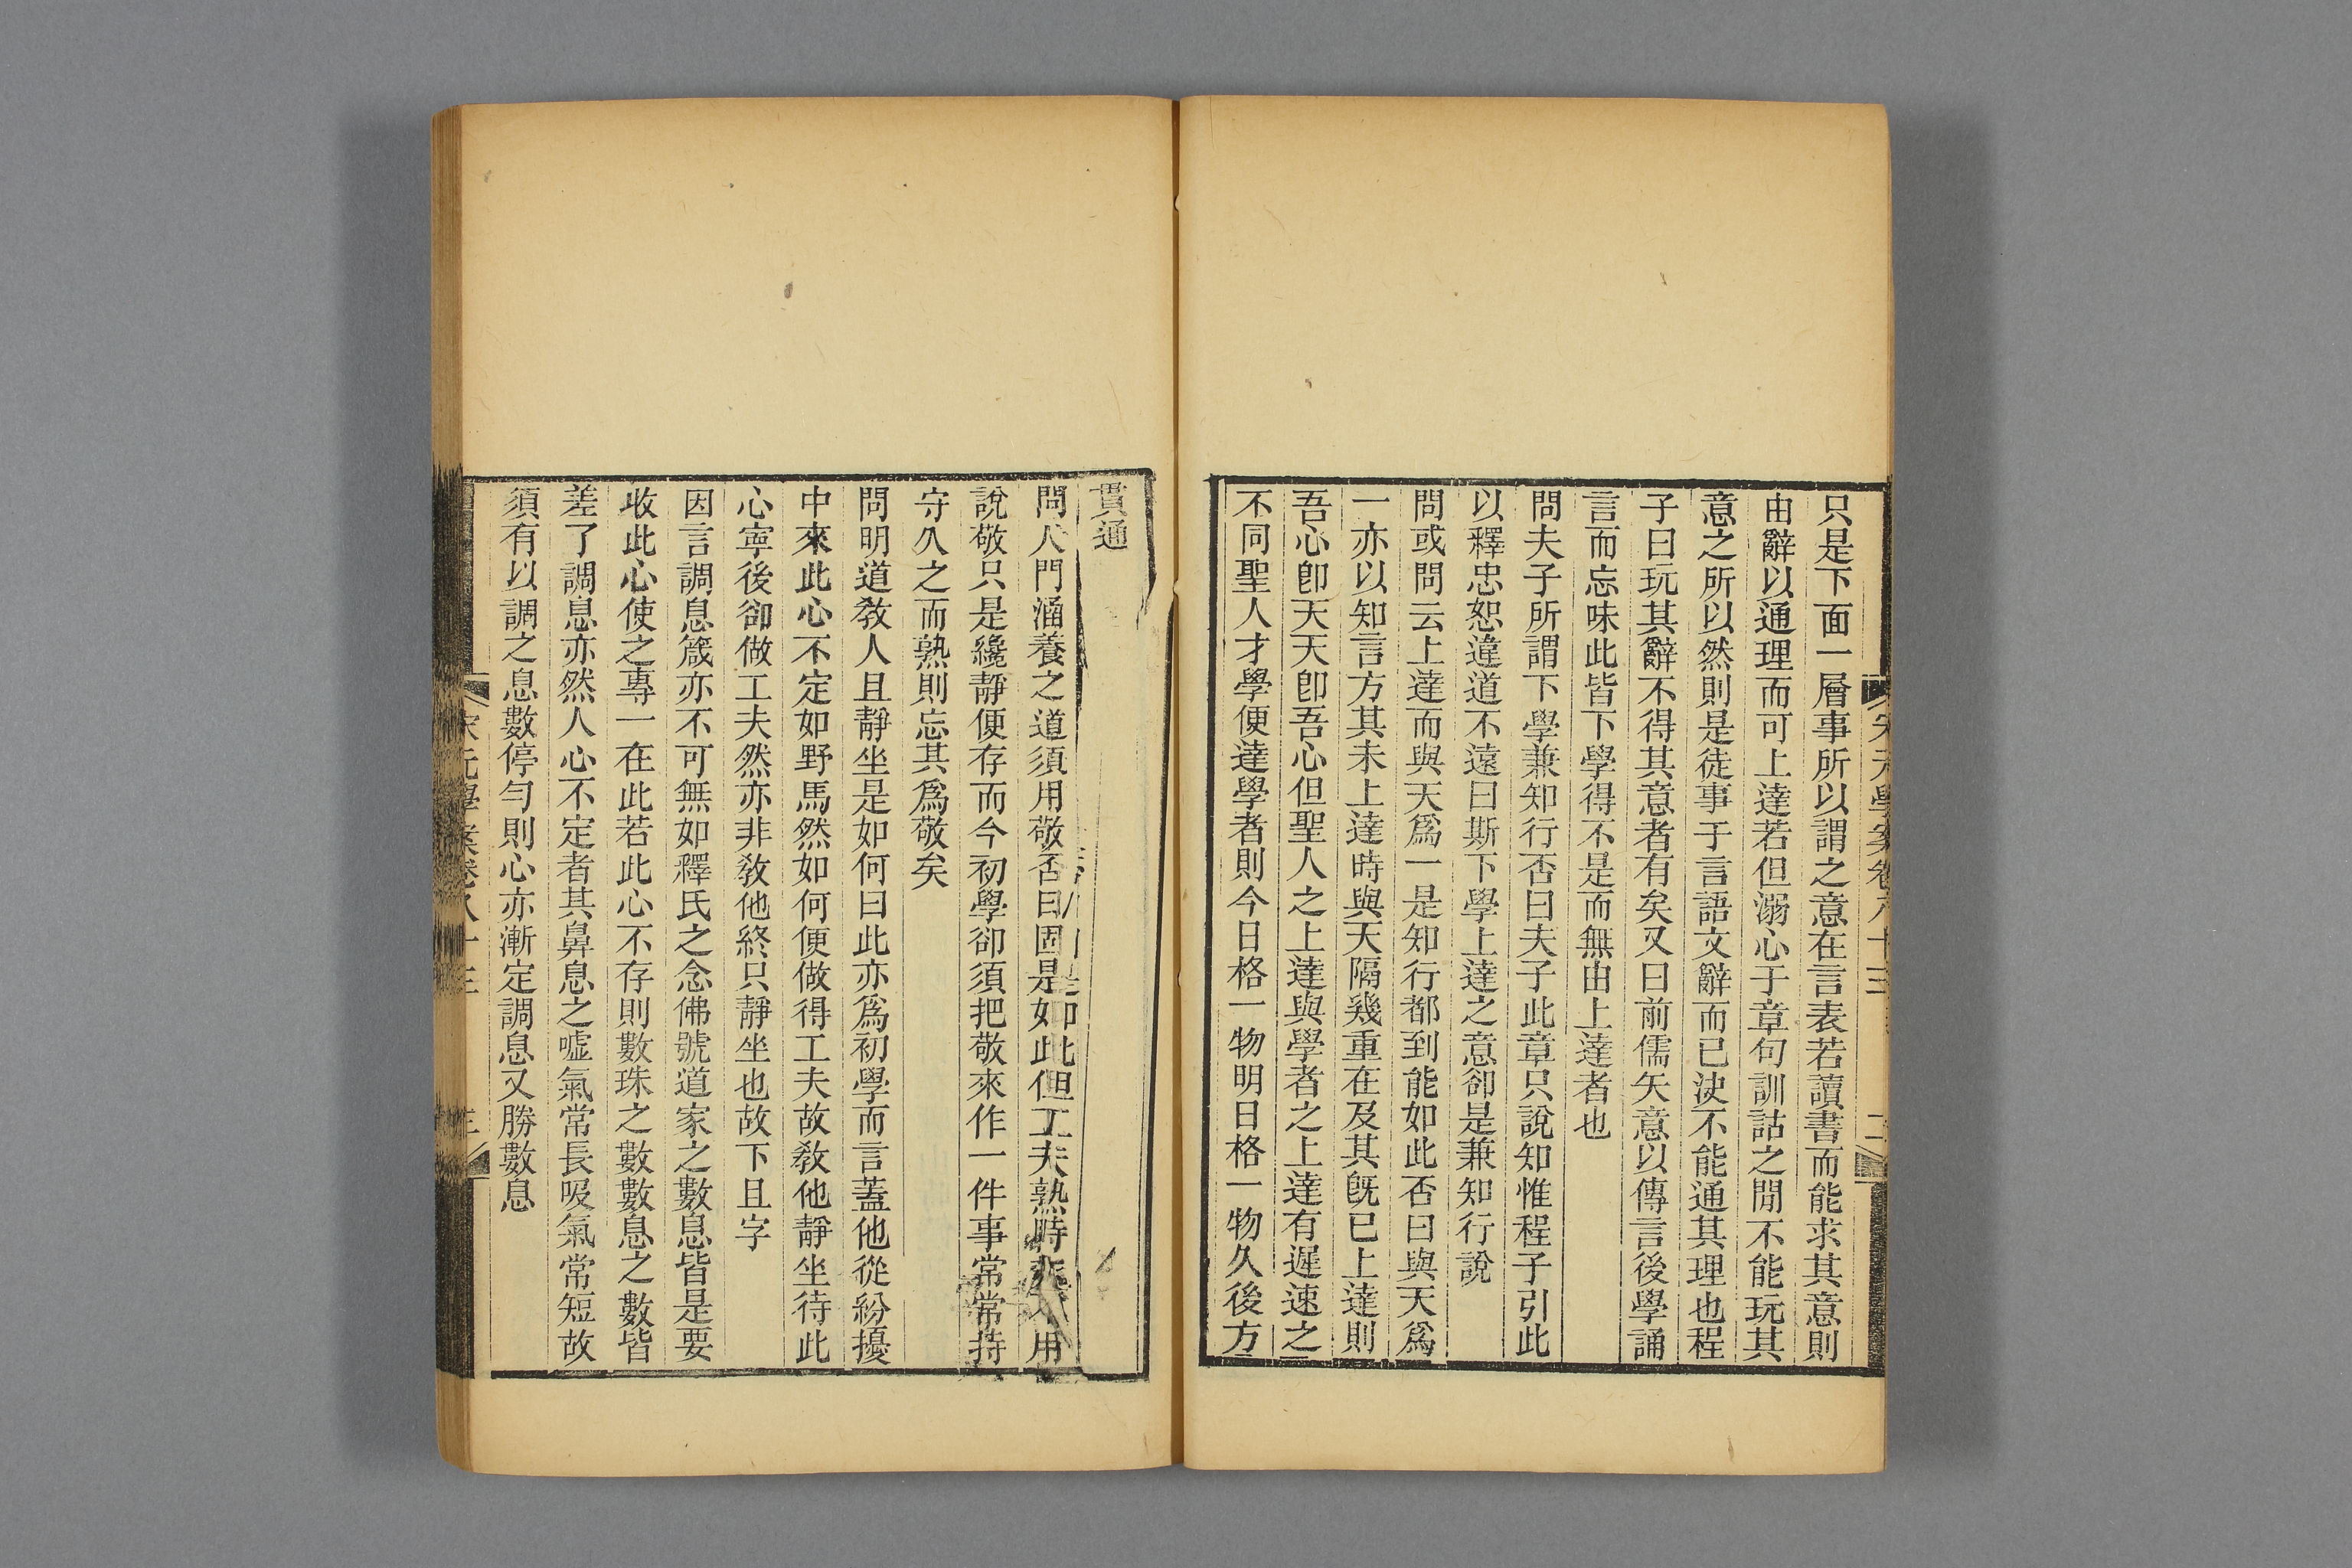 宋元學案卷八十三 二
只是下面一層事所以謂之意在言表若讀書而能求其意則
由辭以通理而可上達若但溺心于章句訓詁之閒不能玩其
意之所以然則是徒事于言語文辭而已決不能通其理也程
子曰玩其辭不得其意者有矣又曰前儒失意以傳言後學誦
言而忘味此皆下學得不是而無由上達者也
問夫子所謂下學兼知行否曰夫子此章只說知惟程子引此
以釋忠恕違道不遠曰斯下學上達之意卻是兼知行說
問或問云上達而與天爲一是知行都到能如此否曰與天爲
一亦以知言方其未上達時與天隔幾重在及其旣已上達則
吾心卽天天卽吾心但聖人之上達與學者之上達有遲速之
不同聖人才學便達學者則今日格一物明日格一物久後方
貫通
問人門涵養之道須用敬否曰固是如此但工夫熟時亦不用
說敬只是纔靜便存而今初學卻須把敬來作一件事常常持
守久之而熟則忘其爲敬矣
問明道敎人且靜坐是如何曰此亦爲初學而言蓋他從紛擾
中來此心不定如野馬然如何便做得工夫故敎他靜坐待此
心寧後卻做工夫然亦非敎他終只靜坐也故下且字
因言調息箴亦不可無如釋氏之念佛號道家之數息皆是要
收此心使之專一在此若此心不存則數珠之數數息之數皆
差了調息亦然人心不定者其鼻息之嘘氣常長吸氣常短故
須有以調之息數停勻則心亦漸定調息又勝數息
宋元學案卷八十三 三